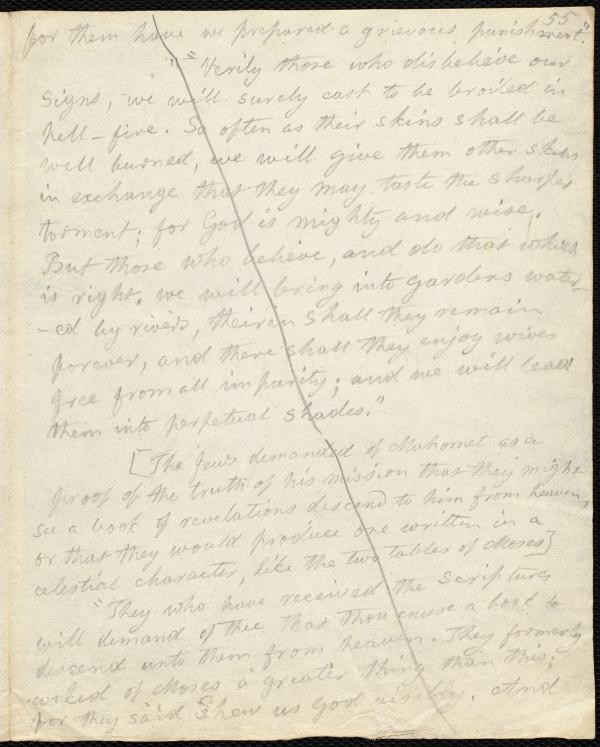 55
for them have we prepared a grievous punishment."
"Verily those who disbelieve our
signs, we will surely cast to be broiled in
hell-fire. So often as their skins shall be
well burned, we will give them other skins
in exchange that they may taste the sharper
torment; for God is mighty and wise.
But those who believe, and do that which
is right, we will bring into gardens water-
-ed by rivers, therein shall they remain
forever, and there shall they enjoy wives
free from all impurity; and we will lead
them into perpetual shades."
[The Jews demanded of Mahomet as a
proof of the truth of his mission that they might
see a book of revelations descend to him from heaven,
or that they would produce one written in a
celestial character, like the two tables of Moses]
"They who have received the Scriptures
will demand of thee that thou cause a book to
descend unto them from heaven. They formerly
asked of Moses a greater thing than this;
for they said Shew us God visibly. And